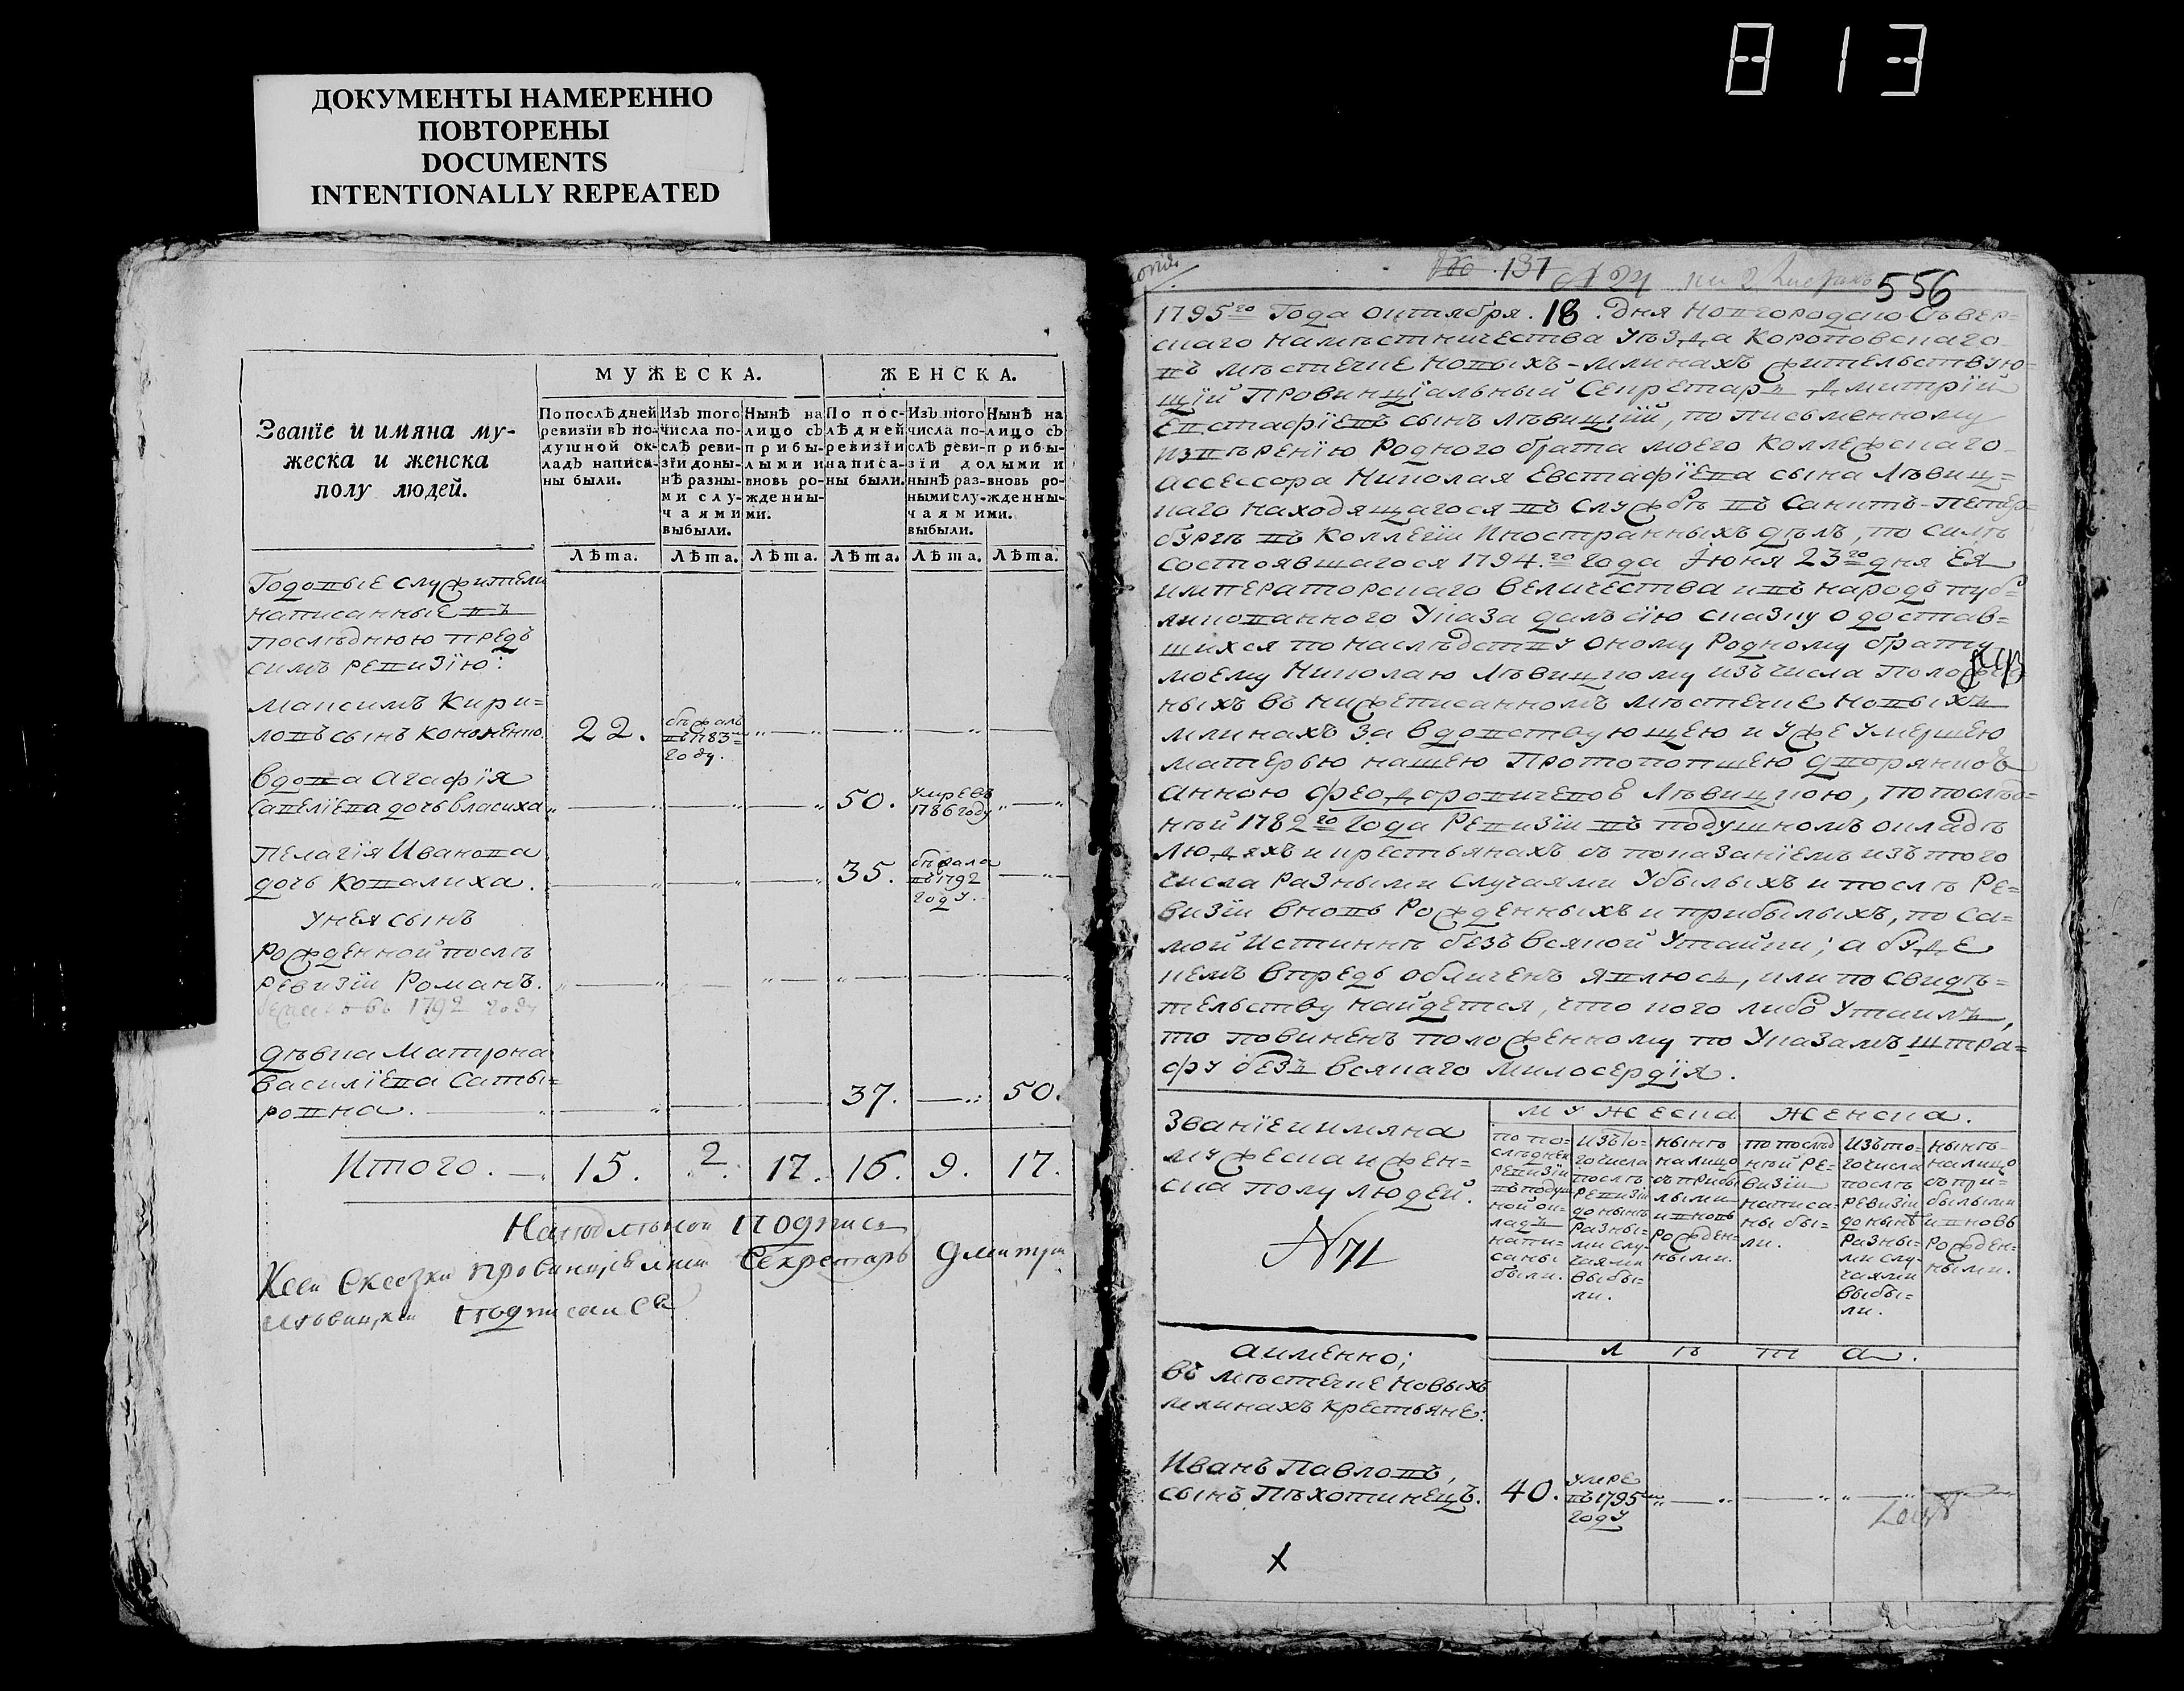 813
ДОКУМЕНТЫ НАМЕРЕННО
ПОВТОРЕНЫ
DOCUMENTS
INTENTIONALLY REPEATED
МУЖЕСКА.
ЖЕНСКА.
Званїе и имяна му-
жеска и женска
полу людей.
По послѣдней
ревизїи въ по-
душной ок-
ладъ написа-
ны были.
Изъ того
числа по-
слѣ реви-
зїи доны-
нѣ разны-
ми слу-
чаями
выбыли.
Нынѣ на
лицо съ
прибы-
лыми и
вновь ро-
жденны-
ми.
По пос-
лѣдней
ревизїи
написа-
ны были.
Изъ того
числа по-
слѣ реви-
зїи до
нынѣ раз-
ными слу-
чаями
выбыли.
Нынѣ на
лицо съ
прибы-
лыми и
вновь ро-
жденны-
ми.
Лѣта. Лѣта. Лѣта. Лѣта. Лѣта. Лѣта.
Годовые служители
написанные въ
послѣднюю предъ
симъ ревизїю:
Максимъ Кири=
ловъ сынъ Кононенко. 22. бѣжалъ въ 1783 году.
вдова Агафїя
Савелїева дочь Власиха 50. умре въ 1786 году
Пелагїя Иванова
дочь Ковалиха. 35. бѣжала въ 1792 году.
У нея сынъ
рожденной послѣ
ревизїи Романъ.
1792 году
дѣвка Матрона
Василїева Саты=
ровна. 37. 50.
Итого. 15. 2. 17. 16. 9. 17.
подписа
Сказки провинциалний Секретарь Дмитри
Лѣвицкий подписался
137
556
1795го Года октября. 18. дня Новгородаго-Сѣвер=
скаго намѣстничества уѣзда Коропскаго
въ мѣстечке Новыхъ-млинахъ жительствую=
щїй Провинцїальный Секретарь Дмитрїй
Евстафїевъ сынъ Лѣвицкїй, по письменному
ввѣренїю Родного брата моего Коллежскаго
Ассессора Николая Евстафїева сына Лѣвиц=
каго находящагося въ службѣ въ Санктъ-Петер=
бургѣ въ Коллегїи Иностранныхъ дѣлъ, по силѣ
состоявшагося 1794.го года Июня 23го дня Ея
императорскаго величества и въ народъ пуб=
ликованного Указа далъ сїю сказку о достав=
шихся по наслѣдству оному Родному брату
моему Николаю Лѣвицкому изъ числа положен
ныхъ въ нижеписанномъ мѣстечке Новыхъ
млинахъ за вдовствующею и уже умершею
матерью нашею Протопопшею дворянкою
Анною Феодоровичевою Лѣвицкою, по послѣд=
ней 1782го года Ревизїи въ подушномъ окладѣ
людяхъ и крестьянахъ съ показанїемъ изъ того
числа разными случаями убылыхъ и послѣ Ре=
визїи вновь рожденныхъ и прибылыхъ, по са=
мой истиннѣ безъ всякой утайки; а буде
чемъ впредь обличенъ явлюсь, или по свидѣ=
тельству найдется, что кого либо утаилъ,
то повиненъ положенному по Указамъ штра=
фу безъ всякаго милосердїя.
Званїе и имяна
мужеска и жен=
ска полу людей.
N 71
мужеска женска.
по по=
слѣдней
ревизїи
въ подуш
ной ок=
ладъ
напи=
саны
были.
изъ то=
го числа
послѣ
ревизїи
до нынѣ
разны=
ми слу=
чаями
выбы=
ли.
нынѣ
на лицо
съ прибы
лыми
и вновь
рожден=
ными.
по послѣд
ней ре=
визїи
написа=
ны бы=
ли.
изъ то=
го числа
послѣ
ревизїи
до нынѣ
разны=
ми слу=
чаями
выбы=
ли.
нынѣ
на лицо
съ при=
былыми
и вновь
рожден=
ными.
лѣта.
а именно;
въ мѣстечке Новыхъ
млинахъ крестьяне:
Иванъ Павловъ,
сынъ Пѣхотинецъ. 40. умре въ 1795м году